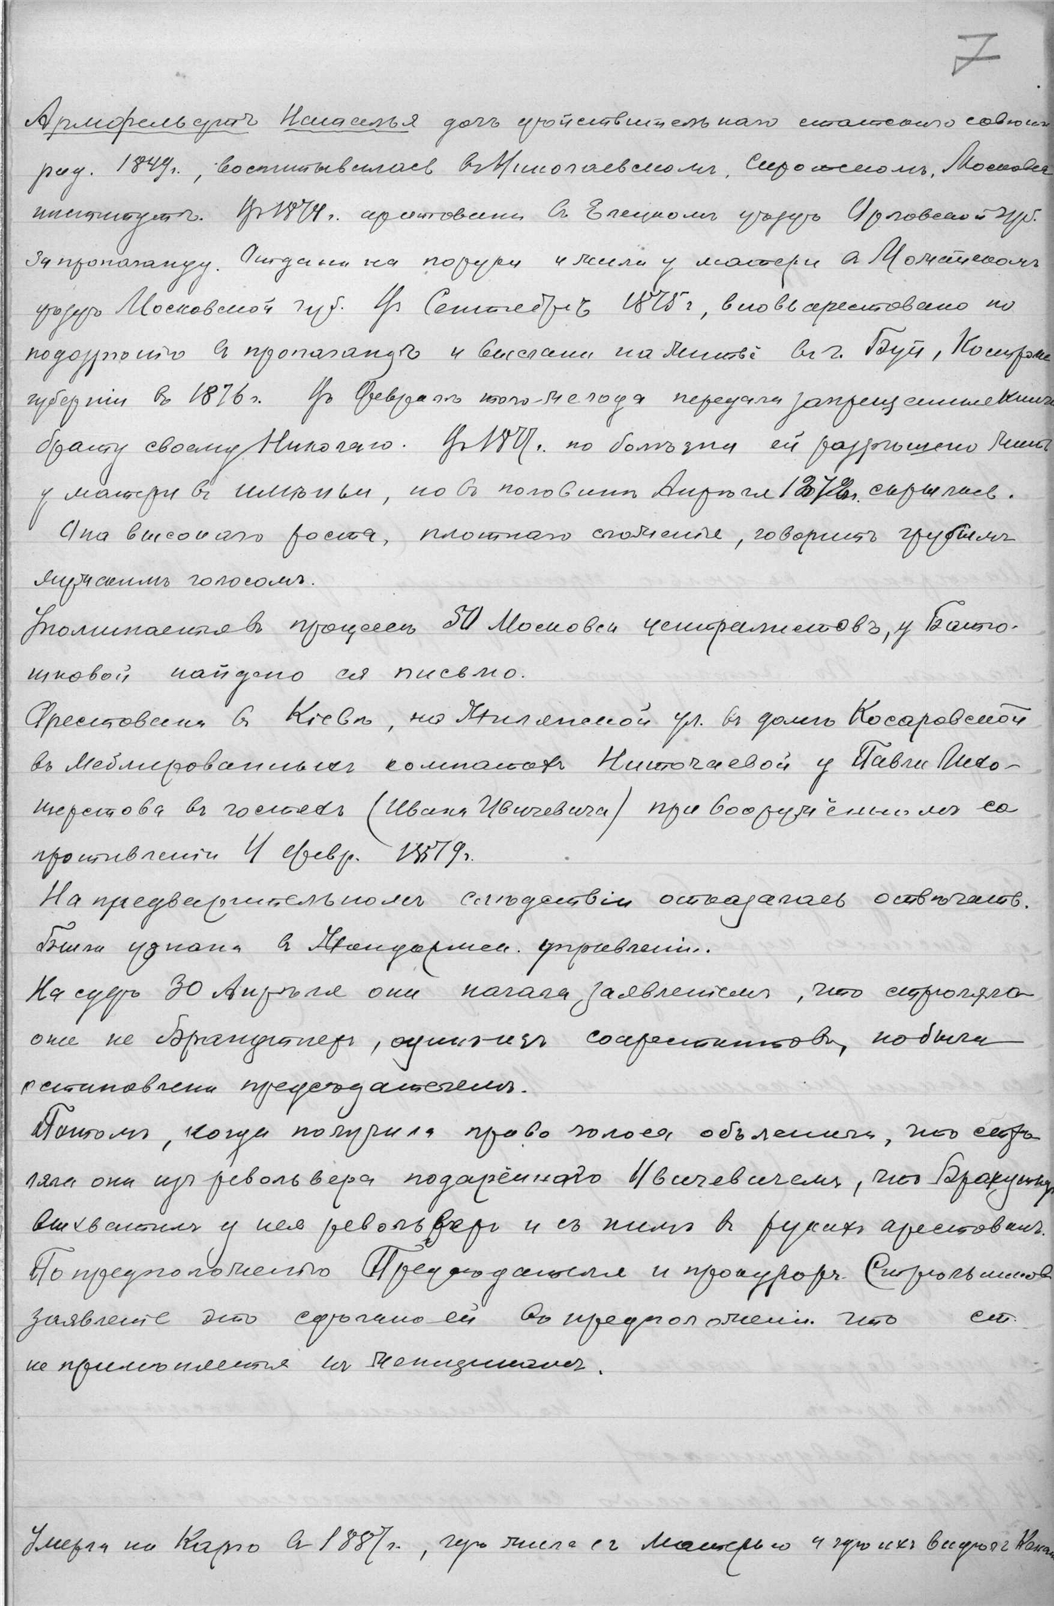 7
Армфельдтъ Наталья дочь дѣйствительнаго статскаго совѣтн
род. 1849г., воспитывалась въ Николаевскомъ, Сиротскомъ, Московск
институтѣ. Въ 1874г. арестована въ Елецкомъ уѣздѣ Орловской губ.
за пропаганду. Отдана на поруки и жила у матери въ Можайскомъ
уѣздѣ Московской губ. Въ Сентябрѣ 1875г, вновь арестована по
подозрѣнію въ пропагандѣ и выслана на житье въ г. Буй, Костром
губерніи въ 1876г. Въ Февралѣ того-же года передала запрещенные книги
брату своему Николаю. Въ 187 г. по болѣзни ей разрѣшено жить
у матери въ имѣньи, но въ половинѣ Апрѣля 1878г. скрылась.
Она высокаго роста, плотнаго сложенія, говоритъ грубымъ
мужскимъ голосомъ.
Упоминается въ процессѣ 50 Московск централистовъ, у Батю-
шковой найдено ея письмо.
Арестована въ Кіевѣ, на Жилянской ул. въ домѣ Косаровской
въ меблированныхъ комнатахъ у Павла
въ гостяхъ (Ивана Ивичевича) при вооружённомъ со
противленіи 11 февр. 1879г.
На предварительномъ слѣдствіи отказалась отвѣчать.
Была узнана въ Жандармск. управленіи.
На судѣ 30 Апрѣля она начала заявленіемъ, что стрѣляла
она не Брандтнеръ, одинъ изъ соарестантовъ, но была
остановлена предсѣдателемъ.
Потомъ, когда получила право голоса объяснила, что стрѣ
ляла она изъ револьвера подарённаго Ивичевичемъ, что Брандтнеръ
выхватилъ у нея револьверъ и съ нимъ въ рукахъ арестованъ.
По предположенію Предсѣдателя и прокурора Стрѣльникова
заявленіе это сдѣлано ей въ предположеніи что см.
не примѣняется къ женщинамъ.
Умерла на Карѣ въ 1887г., гдѣ жила съ Матерью и гдѣ ихъ видѣлъ Кенанъ